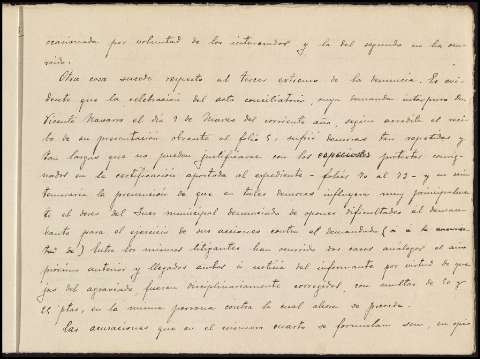 ocasionada por voluntad de los interesados y la del segundo en la su-
Otra cosa sucede respecto al tercer extremo de la denuncia. Es evi-
dente que la celebración del acto conciliatorio, cuya demanda interpuso Dn.
Vicente Navarro el día 9 de Marzo del corriente año, según acredita el reci-
bo de su presentación obrante al folio 5, sufrió demoras tan repetidas y
tan largas que no pueden justificarse con los especiales pretextos consig-
nados en la certificación aportada al expediente - folios 70 al 73 - y es sin
temeraria la presunción de que en tales demoras influyera muy principalmen-
te el deseo del Juez municipal denunciado de oponer dificultades al deman-
dante para el ejercicio de sus acciones contra el demandado
Entre los mismos litigantes han ocurrido dos casos análogos el año
próximo anterior y llegados ambos a noticia del informante por virtud de que-
jas del agraviado fueron disciplinariamente corregidos, con multas de 20 y
25 ptas, en la misma persona contra la cual ahora se procede.
Las acusaciones que en el número cuarto se formulan son, en opi-